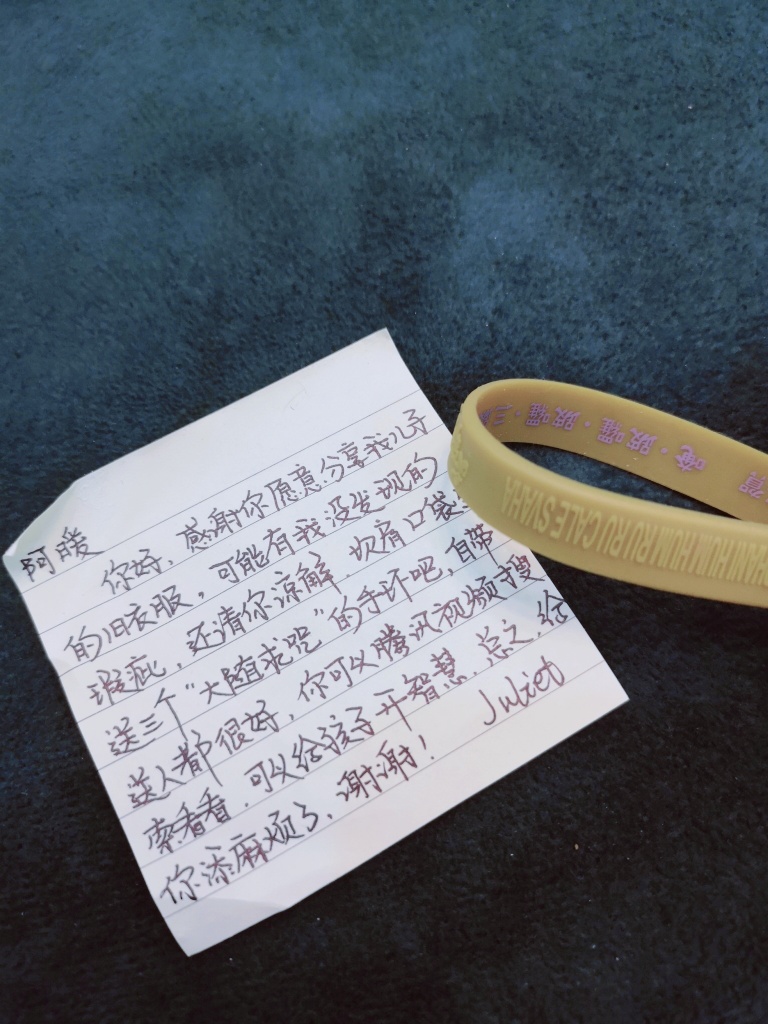 阿暖
你好，感谢你愿意分享我儿子
的旧衣服，可能有我没发现的
瑕疵，还请你谅解，次肩口袋
送三个“大随求咒”的手环吧，自带
送人都很好，你可以腾讯视频搜
索看看，可以给孩子开智慧，总之，给
你添麻烦了，谢谢！ Juliet
唵·跋囉·跋囉·三
賀
HUM HUM RU RU CALE SVAHA